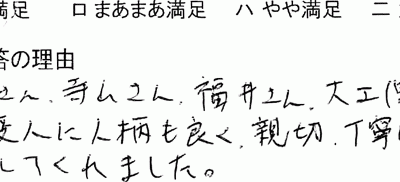 満足 ロ まあまあ満足 ハ やや満足 ニ
答の理由
さん、寺山さん、福井さん、大工(
人に人柄も良く、親切、丁寧に
してくれました。